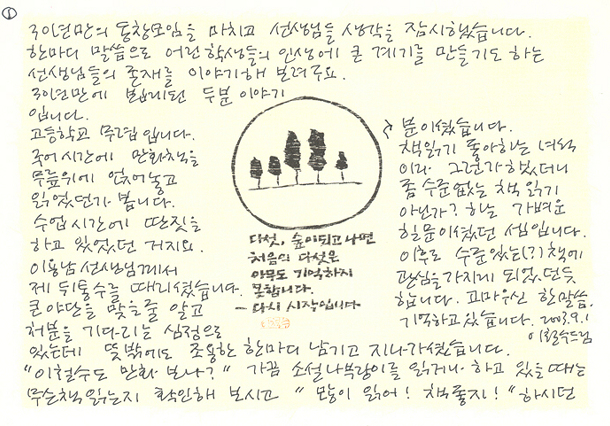 ①
30년만의 동창모임을 마치고 선생님들 생각을 잠시했습니다.
한마디 말씀으로 어린학생들의 인생에 큰 계기를 만들기도 하는
선생님들의 존재를 이야기해 보려구요.
30년만에 뵙게된 두분 이야기
입니다.
고등학교 무렵입니다.
국어시간에 만화책을
무릎위에 얹어놓고
읽었던가 봅니다.
수업시간에 딴짓을
하고 있었던 거지요.
이용남선생님께서
제 뒤통수를 때리셨습니다.
큰야단을 맞을줄 알고
처분을 기다리는 심정으로
있는데 뜻밖에도 조용한 한마디 남기고 지나가셨습니다.
"이철수도 만화 보나?" 가끔 소설나부랑이를 읽거나 하고 있을때는
무슨책읽는지 확인해 보시고 "많이 읽어! 책좋지!" 하시던
분이셨습니다.
책읽기 좋아하는 녀석
이라 그런가했더니
좀 수준없는 책 읽기
아닌가? 하는 가벼운
힐문이셨던 셈입니다.
이후로 수준있는(?) 책에
관심을가지게 되었던듯
합니다. 고마우신 한말씀.
기억하고있습니다. 2003.9.1
이철수드림
다섯, 숲이되고나면
처음의 다섯은
아무도 기억하지
못합니다.
- 다시 시작입니다